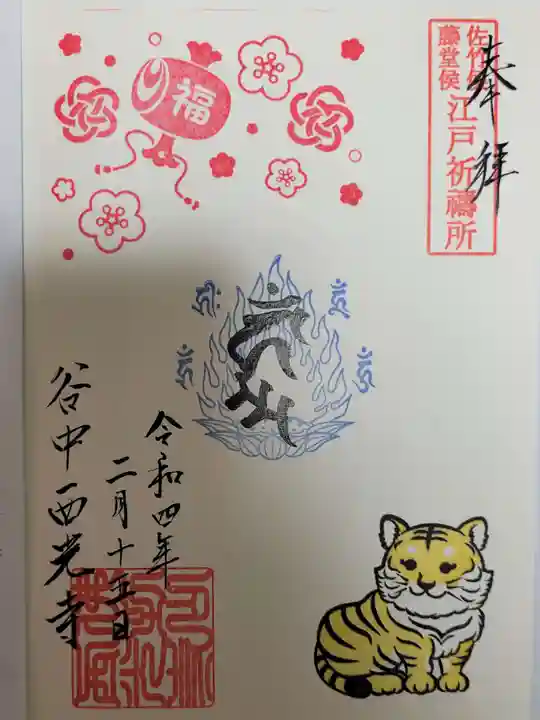 奉拝
佐竹侯
藤堂侯
江戸祈禱所
福
令和四年
二月十五日
谷中西光寺